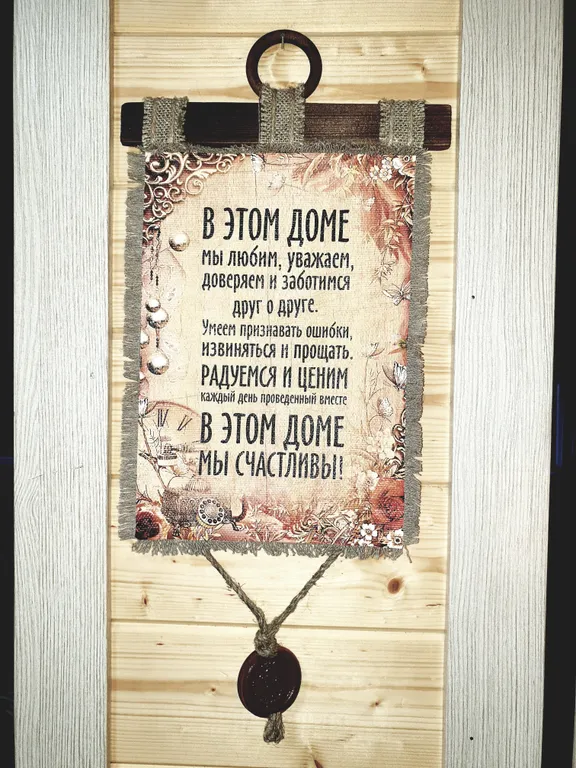 В ЭТОМ ДОМЕ
мы любим, уважаем,
доверяем и заботимся
друг о друге.
Умеем признавать ошибки,
извиняться и прощать.
РАДУЕМСЯ И ЦЕНИМ
каждый день проведенный вместе
В ЭТОМ ДОМЕ
МЫ СЧАСТЛИВЫ!